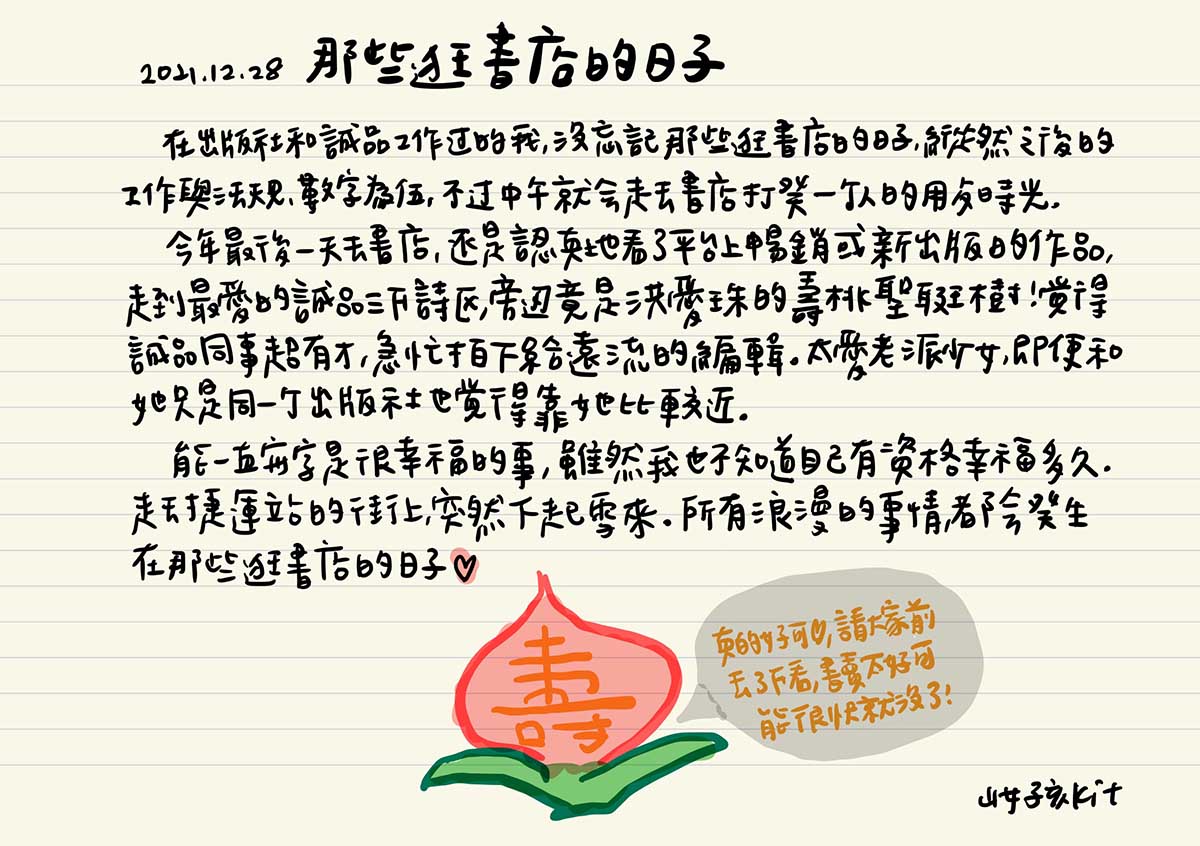 2021.12.28 那些逛書店的日子
在出版社和誠品工作过的我,沒忘記那些逛書店的日子,縱然之後的
工作與法規、數字為伍,不过中午就会走去書店打發一个人的用多時光.
今年最後一天去書店,还是認真地看了平台上暢銷或新出版的作品,
走到最愛的誠品三下詩区,旁边竟是洪愛珠的壽桃聖誕樹!覚得
誠品同事超有才,急忙拍下来給遠流的編輯.太愛老派少女,即便和
她只是同一个出版社也覚得靠她比較近.
能一直寫字是很幸福的事,雖然我也不知道自己有資格幸福多久.
走去捷運站的街上,突然下起雪來.所有浪漫的事情,都会發生
在那些逛書店的日子♡
壽
真的好可♡,請大家前
去了下看,書賣不好可
能很快就沒了!
山女孩Kit